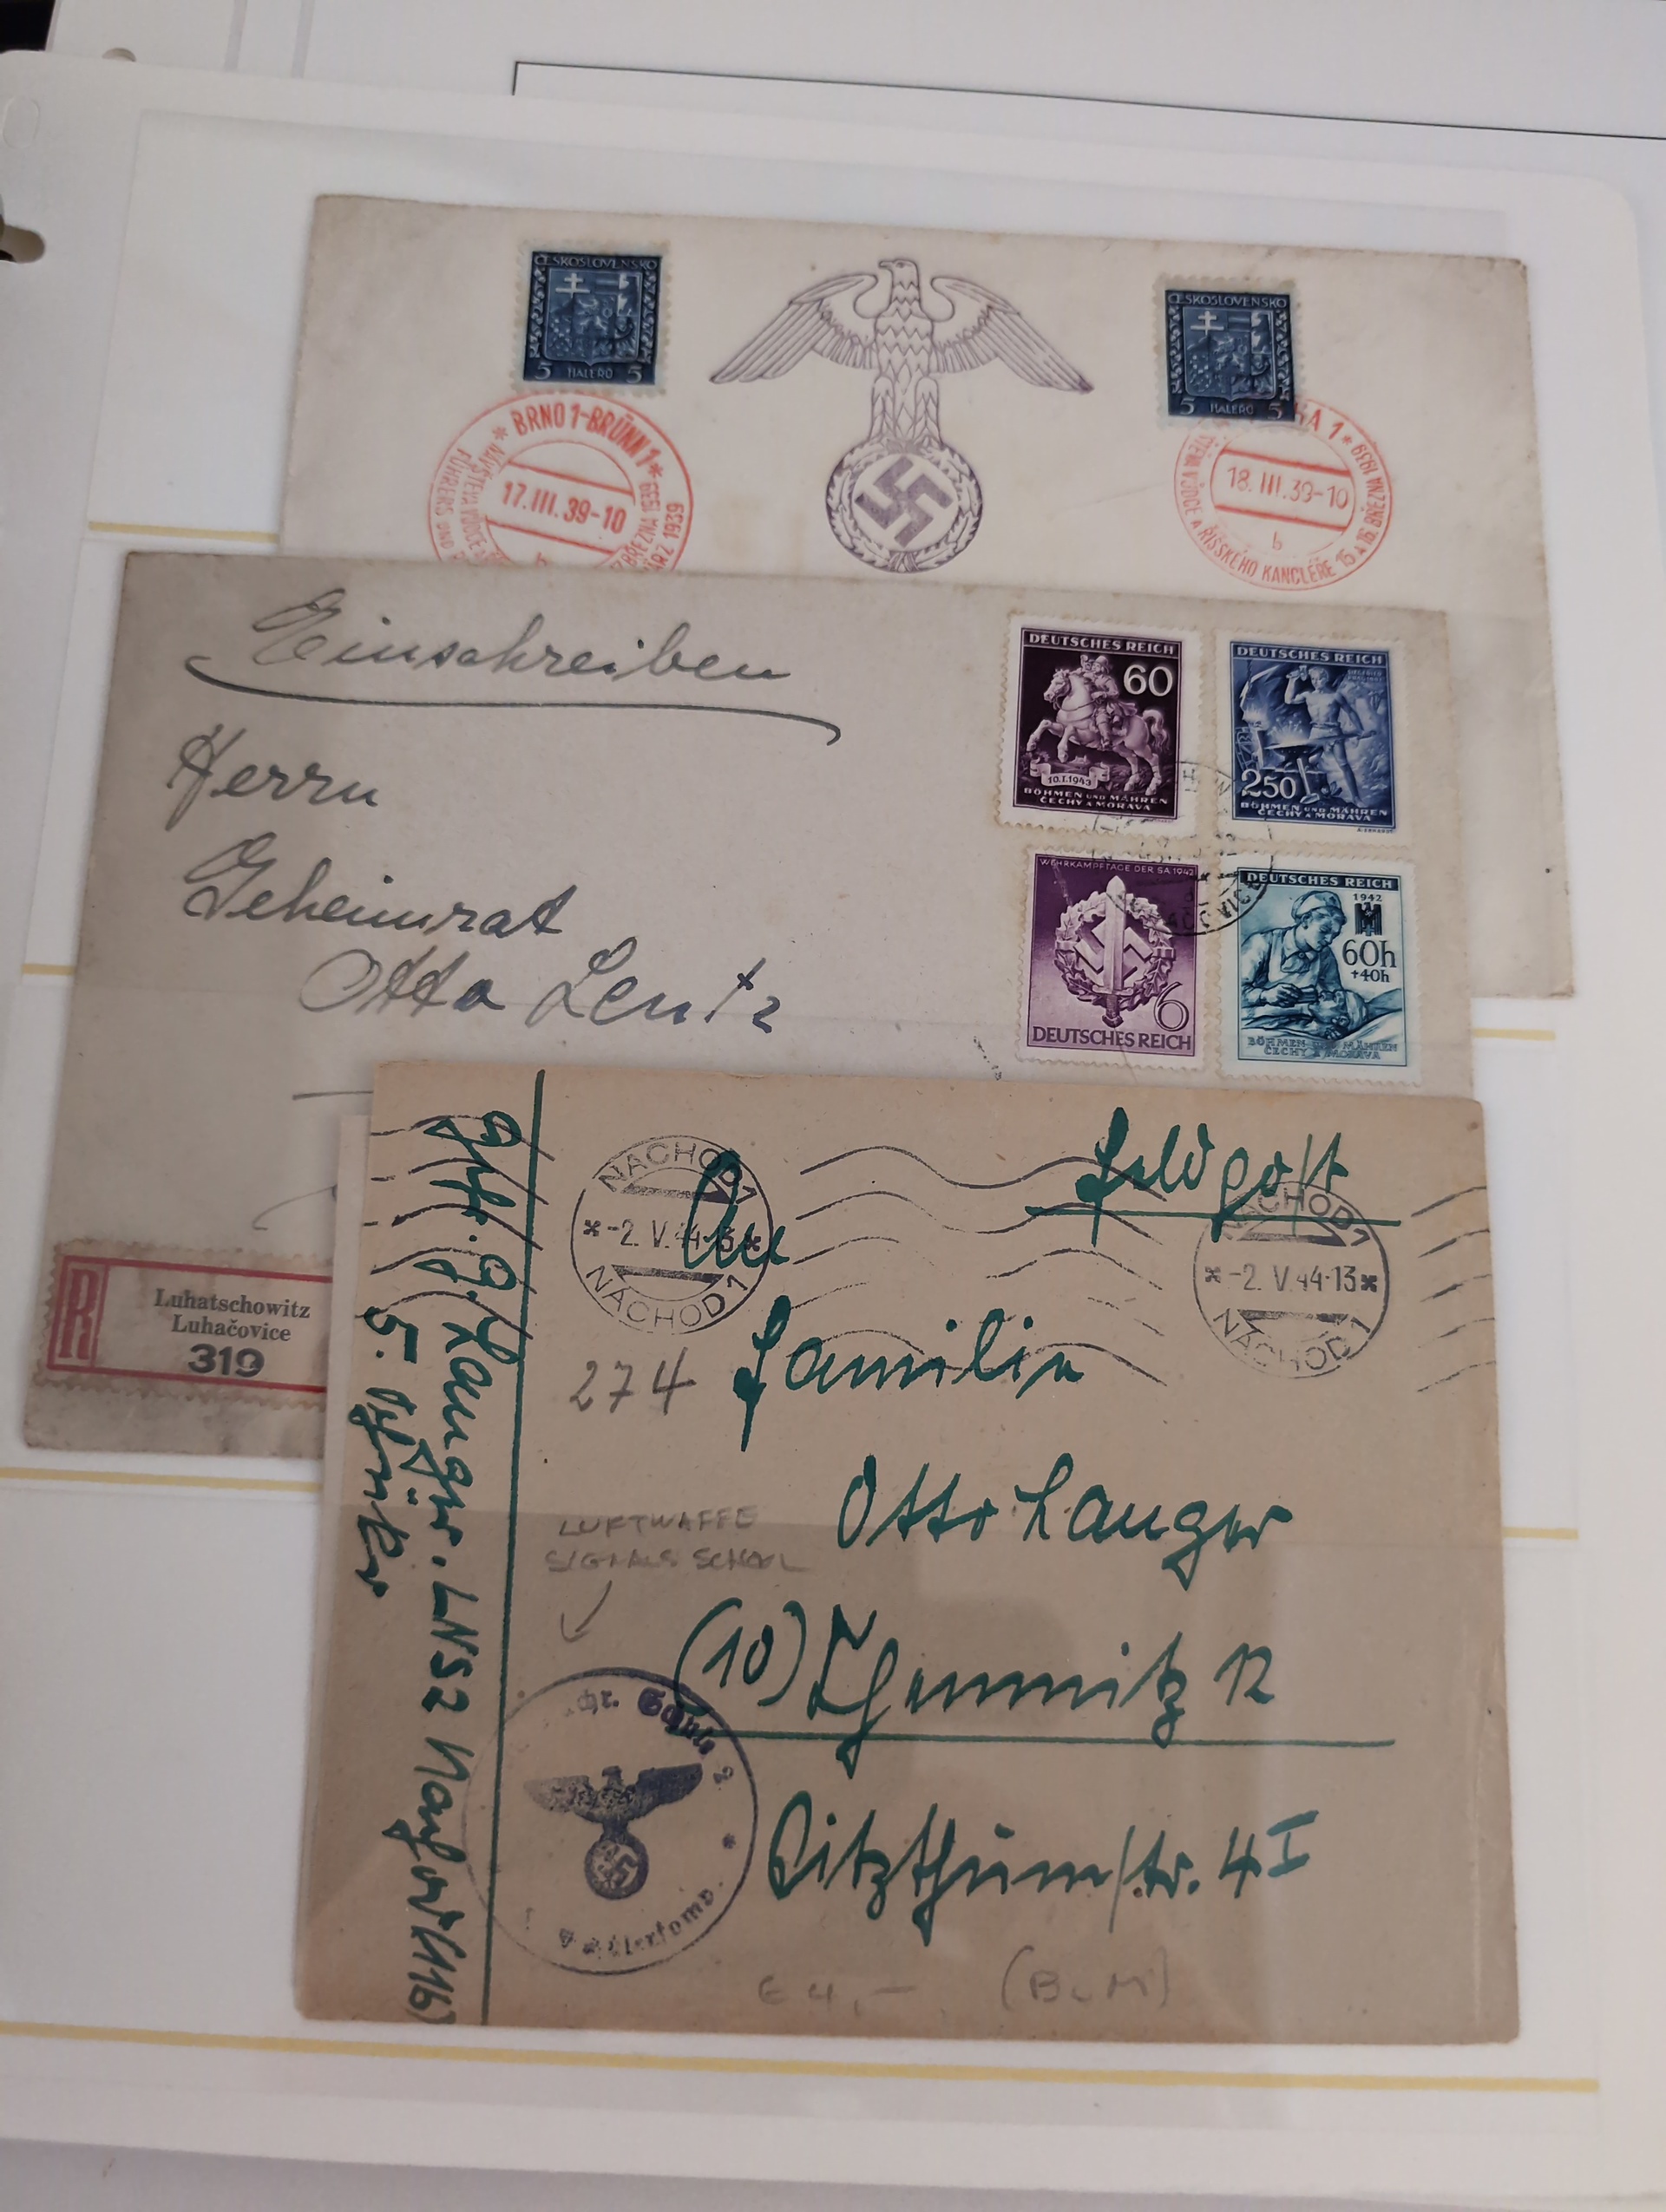 ČESKOSLOVENSKO
5 HALÉŘŮ 5
BRNO 1-BRÜNN 1
NÁVŠTĚVA VŮDCE A
BŘEZNA 1939
FÜHRERS UND
MÄRZ 1939
17.III.39-10
b
ČESKOSLOVENSKO
5 HALÉŘŮ 5
HA 1
18.III.39-10
b
VŮDCE A ŘÍŠSKÉHO KANCLÉŘE 15 A 16. BŘEZNA 1939
Einschreiben
Herrn
Geheimrat
Otto Lentz
DEUTSCHES REICH
60
10.I.1943
BÖHMEN UND MÄHREN
ČECHY A MORAVA
DEUTSCHES REICH
250
BÖHMEN UND MÄHREN
ČECHY A MORAVA
WEHRKAMPFTAGE DER SA 1942
6
DEUTSCHES REICH
DEUTSCHES REICH
1942
60h
+40h
BÖHMEN UND MÄHREN
ČECHY A MORAVA
R
Luhatschowitz
Luhačovice
319
Feldpost
NACHOD 1
-2.V.44-13
NACHOD 1
NACHOD 1
-2.V.44-13
NACHOD 1
An
Familie
274
Otto Langer
(10) Chemnitz 12
LUFTWAFFE
SIGNALS SCHOOL
Schule 2
Langer. LNS 2
E 4,- (B u M)